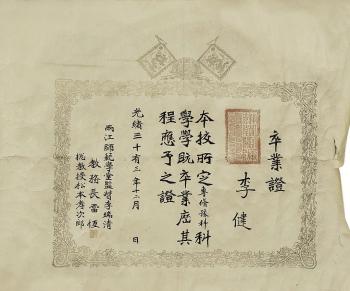 卒業證
李健
本校所定專修豫科科
學學旣卒業应其
程應予之證
光緒三十有三年十二月 日
兩江師範學堂監督李瑞清
教務長雷恆
總教授松本孝次郎